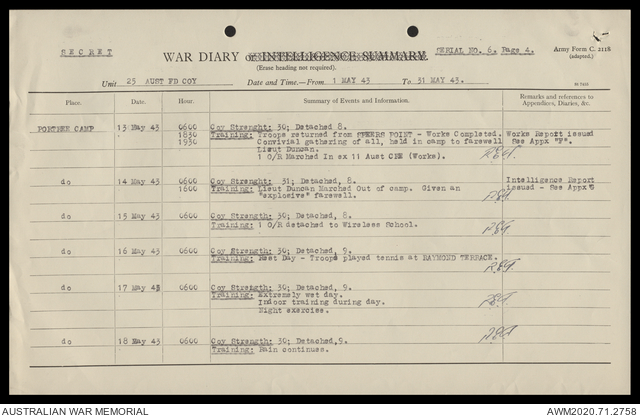 SECRET
WAR DIARY or INTELLIGENCE SUMMARY.
SERIAL NO. 6. Page 4.
Army Form C. 2118
(adapted.)
(Erase heading not required).
Unit 25 AUST FD COY Date and Time.—From 1 MAY 43 To 31 MAY 43.
Place. Date. Hour. Summary of Events and Information. Remarks and references to
Appendices, Diaries, &c.
PORTHEN CAMP 13 May 43 0600 Coy Strenght: 30; Detached 8.
1830 Training: Troops returned from SPEERS POINT - Works Completed. Works Report issued
1930 Convivial gathering of all, held in camp to farewell See Appx "F".
Lieut Duncan.
1 O/R Marched In ex 11 Aust CRE (Works).
do 14 May 43 0600 Coy Strength: 31; Detached, 8. Intelligence Report
1600 Training: Lieut Duncan Marched Out of camp. Given an issued - See Appx
"explosive" farewell.
do 15 May 43 0600 Coy Strength: 30; Detached, 8.
Training: 1 O/R detached to Wireless School.
do 16 May 43 0600 Coy Strength: 30; Detached, 9.
Training: Rest Day - Troops played tennis at RAYMOND TERRACE.
do 17 May 43 0600 Coy Strength: 30; Detached, 9.
Training: Extremely wet day.
Indoor training during day.
Night exercises.
do 18 May 43 0600 Coy Strength: 30; Detached,9.
Training: Rain continues.
AUSTRALIAN WAR MEMORIAL
AWM2020.71.2758